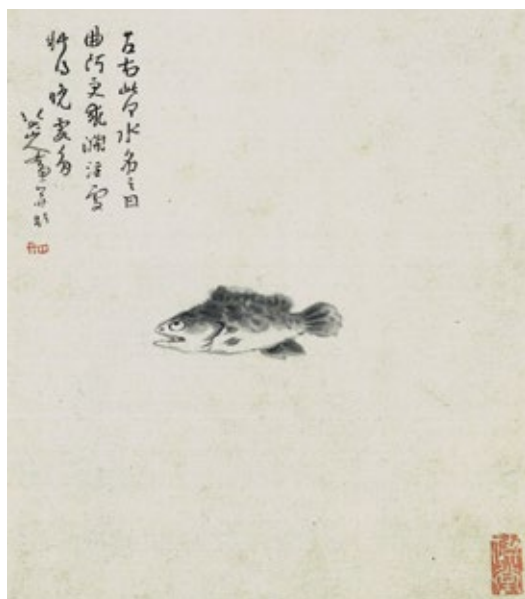 左右此何水名之曰
曲阿更求淵注處
料得晚霞多
八大山人畫并題